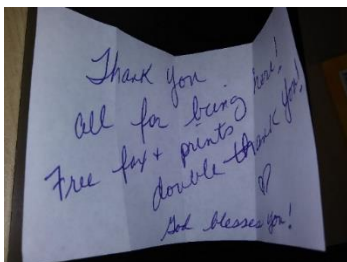 Thank you
all for being here!
Free fax + prints
double thank you!
♡
God blesses you!